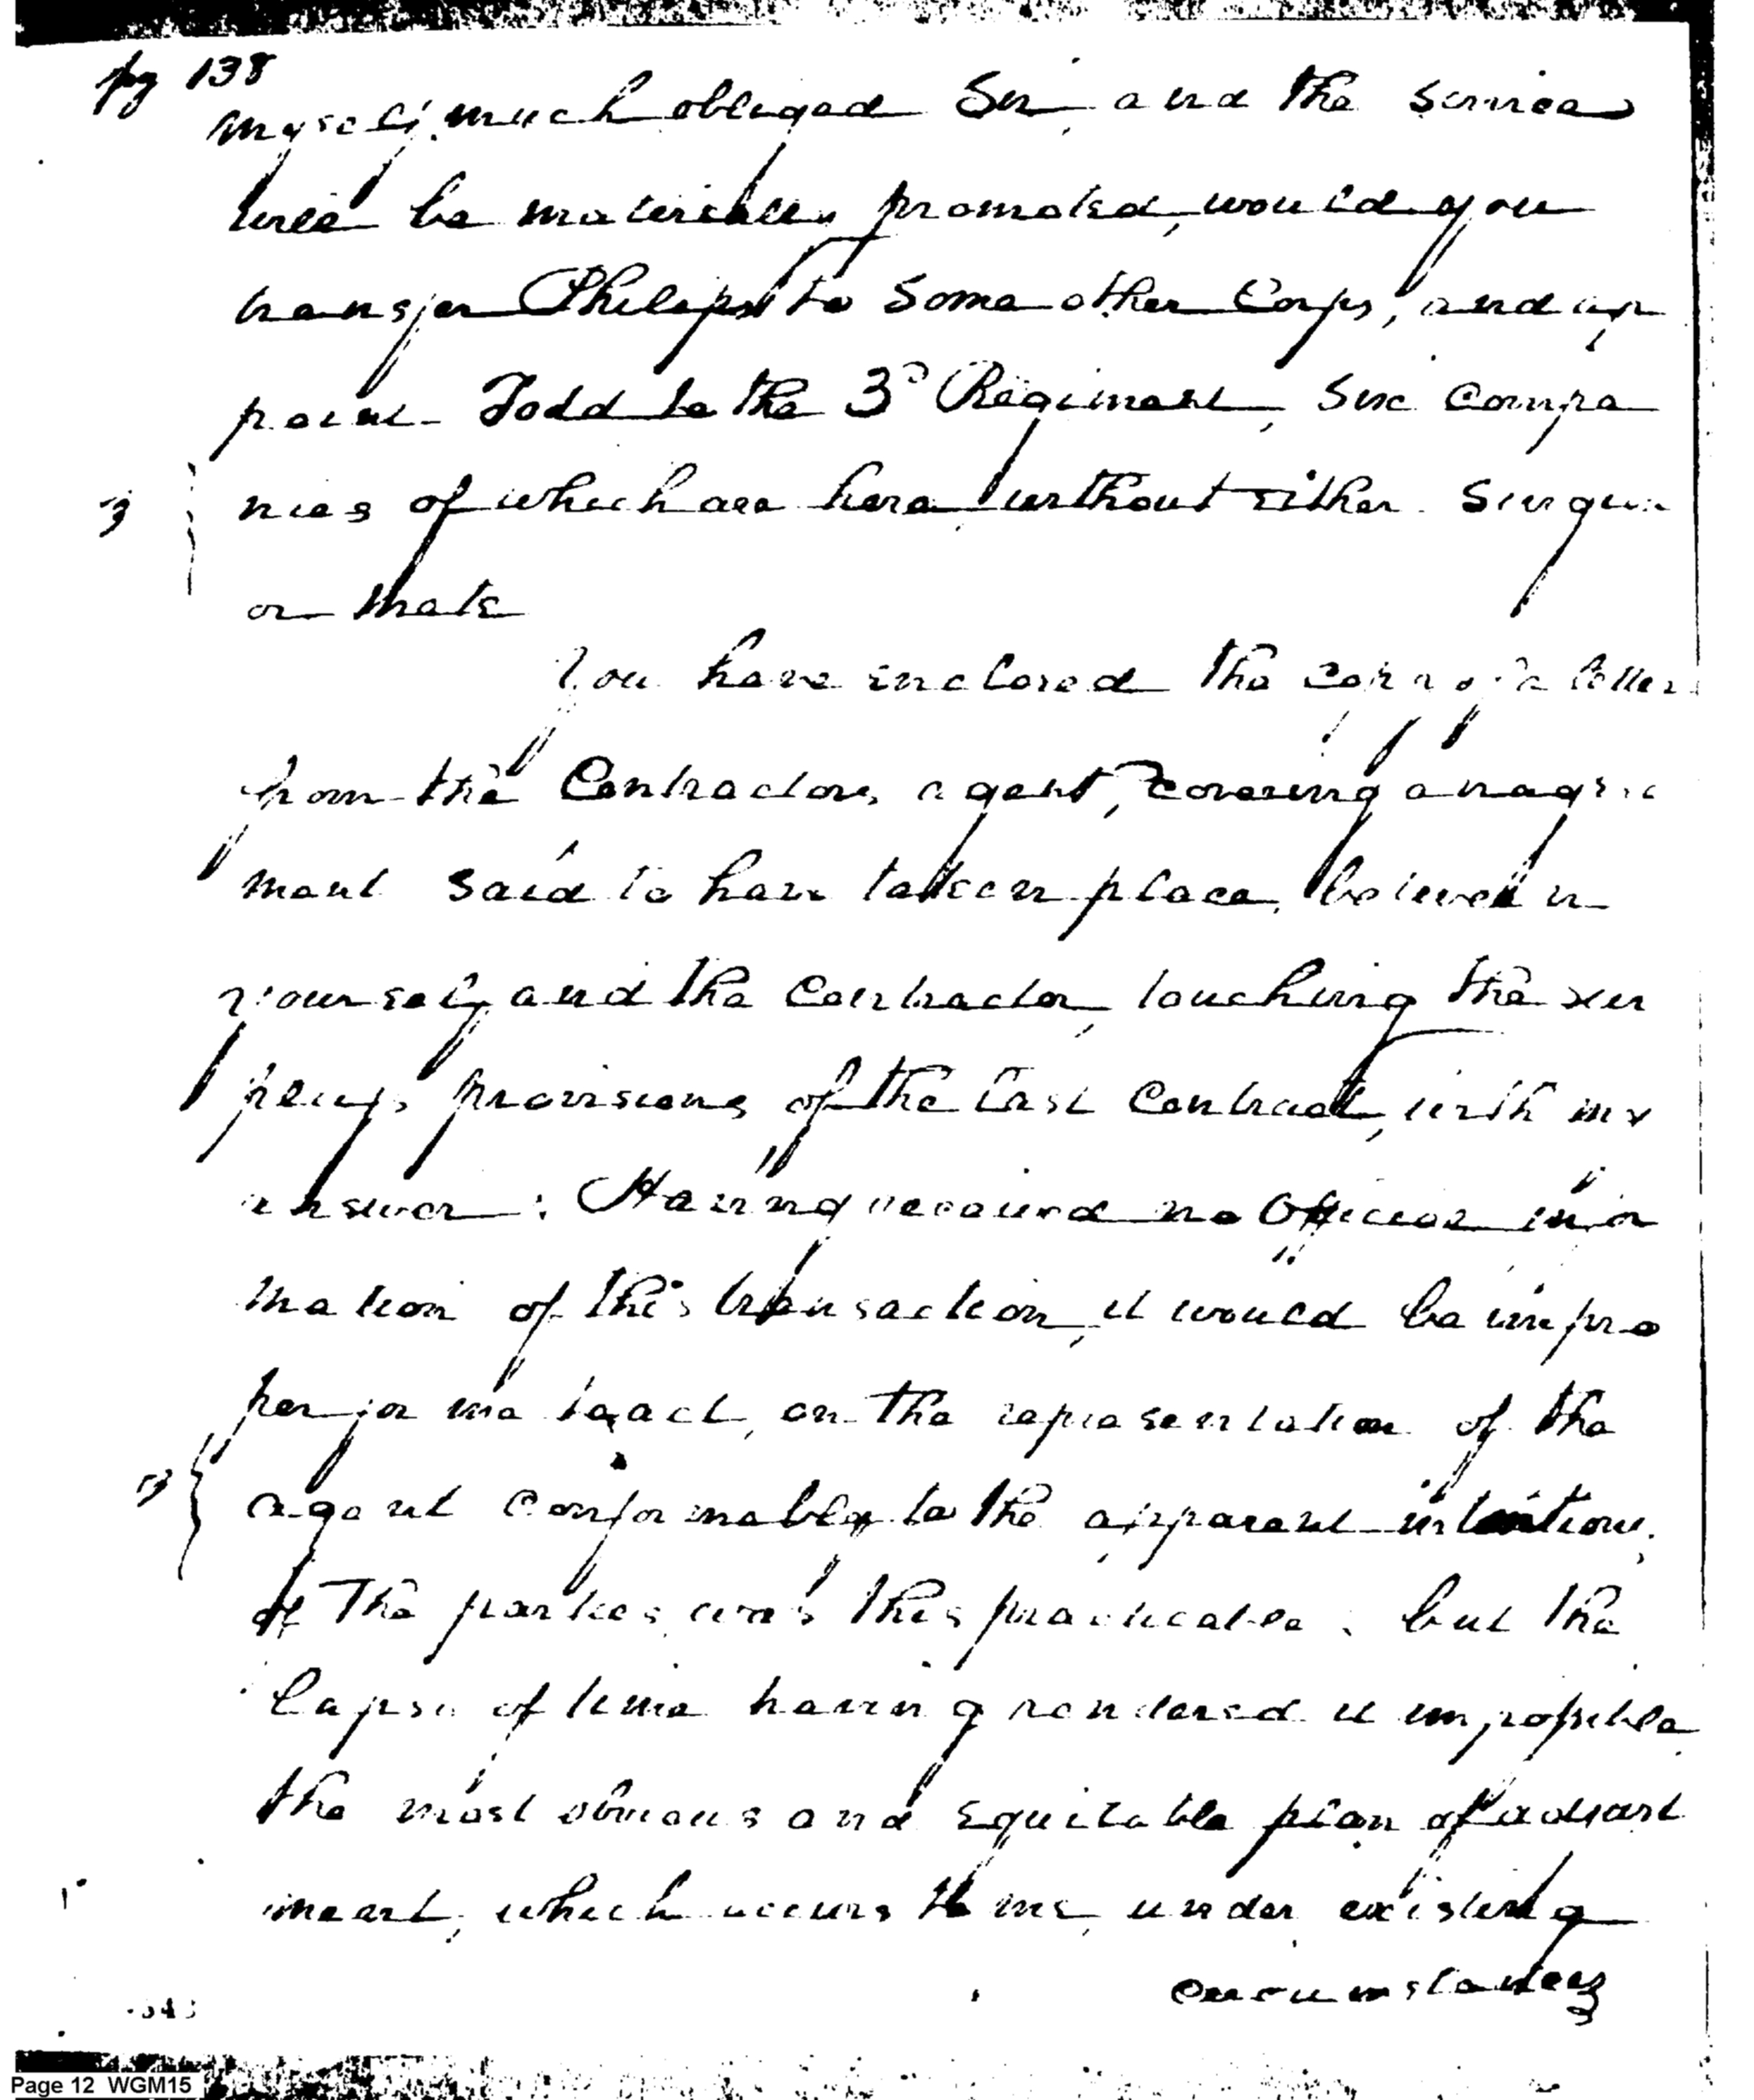 pg 138
myself much obliged Sir, and the service
will be materially promoted, would you
transfer Philips to some other Corps, and ap
point Todd to the 3d Regiment, Six Compa
nies of which are here without either Surgeon
or Mate
You have inclosed the copy of a letter
from the Contractors agent, covering an agree
ment said to have taken place, between
yourself and the Contractor, touching the sur
pluss provisions of the last Contract, with my
answer: Having received no Official infor
mation of this transaction, it would be impro
per for me to act, on the representation of the
agent conformably to the apparent intentions
of the parties, was this practicable, but the
lapse of time having rendered it impossible
the most obvious and equitable plan of adjust
ment, which occurs to me, under existing
circumstances
Page 12 WGM15